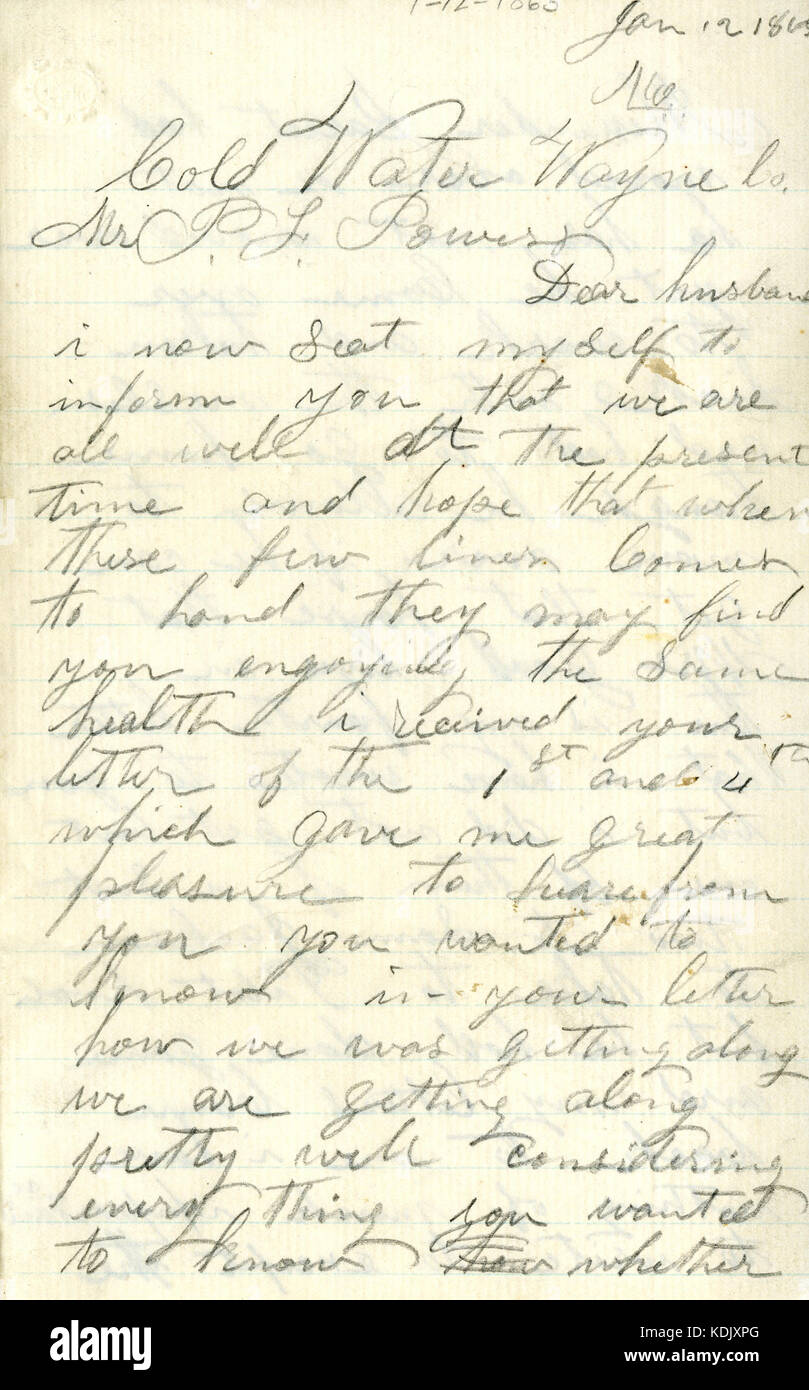 1-12-1863
Jan 12 186
Mo.
Cold Water Wayne Co.
Mr P. L. Powers
Dear husban
i now seat myself to
inform you that we are
all well at the present
time and hope that when
these few lines comes
to hand they may find
you engoying the same
health i received your
letter of the 1st and 4th
which gave me great
pleasure to heare from
you you wanted to
know in your letter
how we was getting along
we are getting along
pretty well considering
every thing you wanted
to know how whether
alamy
Image ID: KDJXPG
www.alamy.com